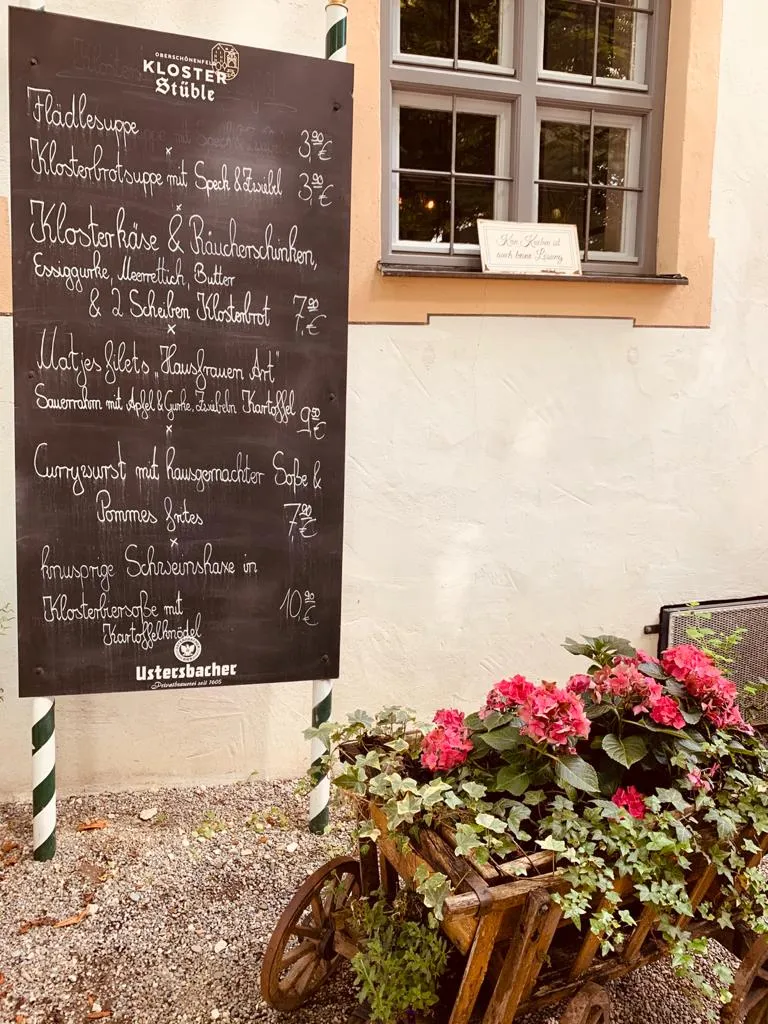 OBERSCHÖNENFELD
KLOSTER
Stüble
Flädlesuppe 3,90€
x
Klosterbrotsuppe mit Speck & Zwiebel 3,90€
x
Klosterkäse & Räucherschinken,
Essiggurke, Meerrettich, Butter
& 2 Scheiben Klosterbrot 7,90€
x
Matjesfilets „Hausfrauen Art"
Sauerrahm mit Apfel & Gurke, Zwiebeln Kartoffel 9,90€
x
Currywurst mit hausgemachter Soße &
Pommes frites 7,90€
x
knusprige Schweinshaxe in
Klosterbiersoße mit 10,90€
Kartoffelknödel
Ustersbacher
Privatbrauerei seit 1605
Kein Kuchen ist
auch keine Lösung